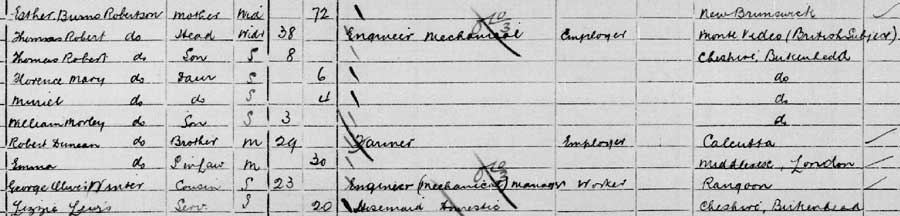 Esther Burns Robertson Mother Wid 72 New Brunswick
Thomas Robert do Head Widr 38 Engineer Mechanical Employer Monte Video (British Subject)
Thomas Robert do Son S 8 Cheshire, Birkenhead
Florence Mary do Daur S 6 do
Muriel do do S 4 do
William Morley do Son S 3 do
Robert Duncan do Brother M 29 Employer Calcutta
Emma do M 30 Middlesex, London
George Winter Cousin S 23 Engineer (Mechanical) Manager Worker Rangoon
Lizzie Lewis Serv S 20 Housemaid Domestic Cheshire, Birkenhead